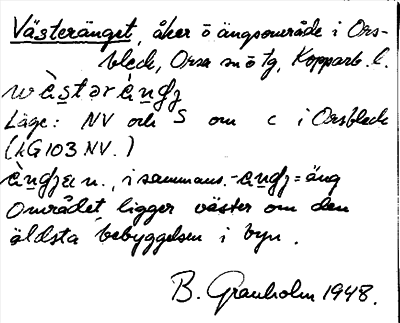 Västeränget, åker o ängsområde i Ors-
bleck, Orsa sn o tg, Kopparb. l.
Läge: NV och S om c i Orsbleck
(kG103 NV.)
n., i sammans. = äng
Området ligger väster om den
äldsta bebyggelsen i byn.
B. Granholm 1948.